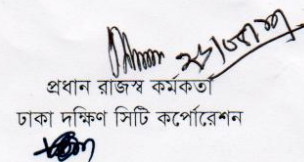 প্রধান রাজস্ব কর্মকর্তা
ঢাকা দক্ষিণ সিটি কর্পোরেশন